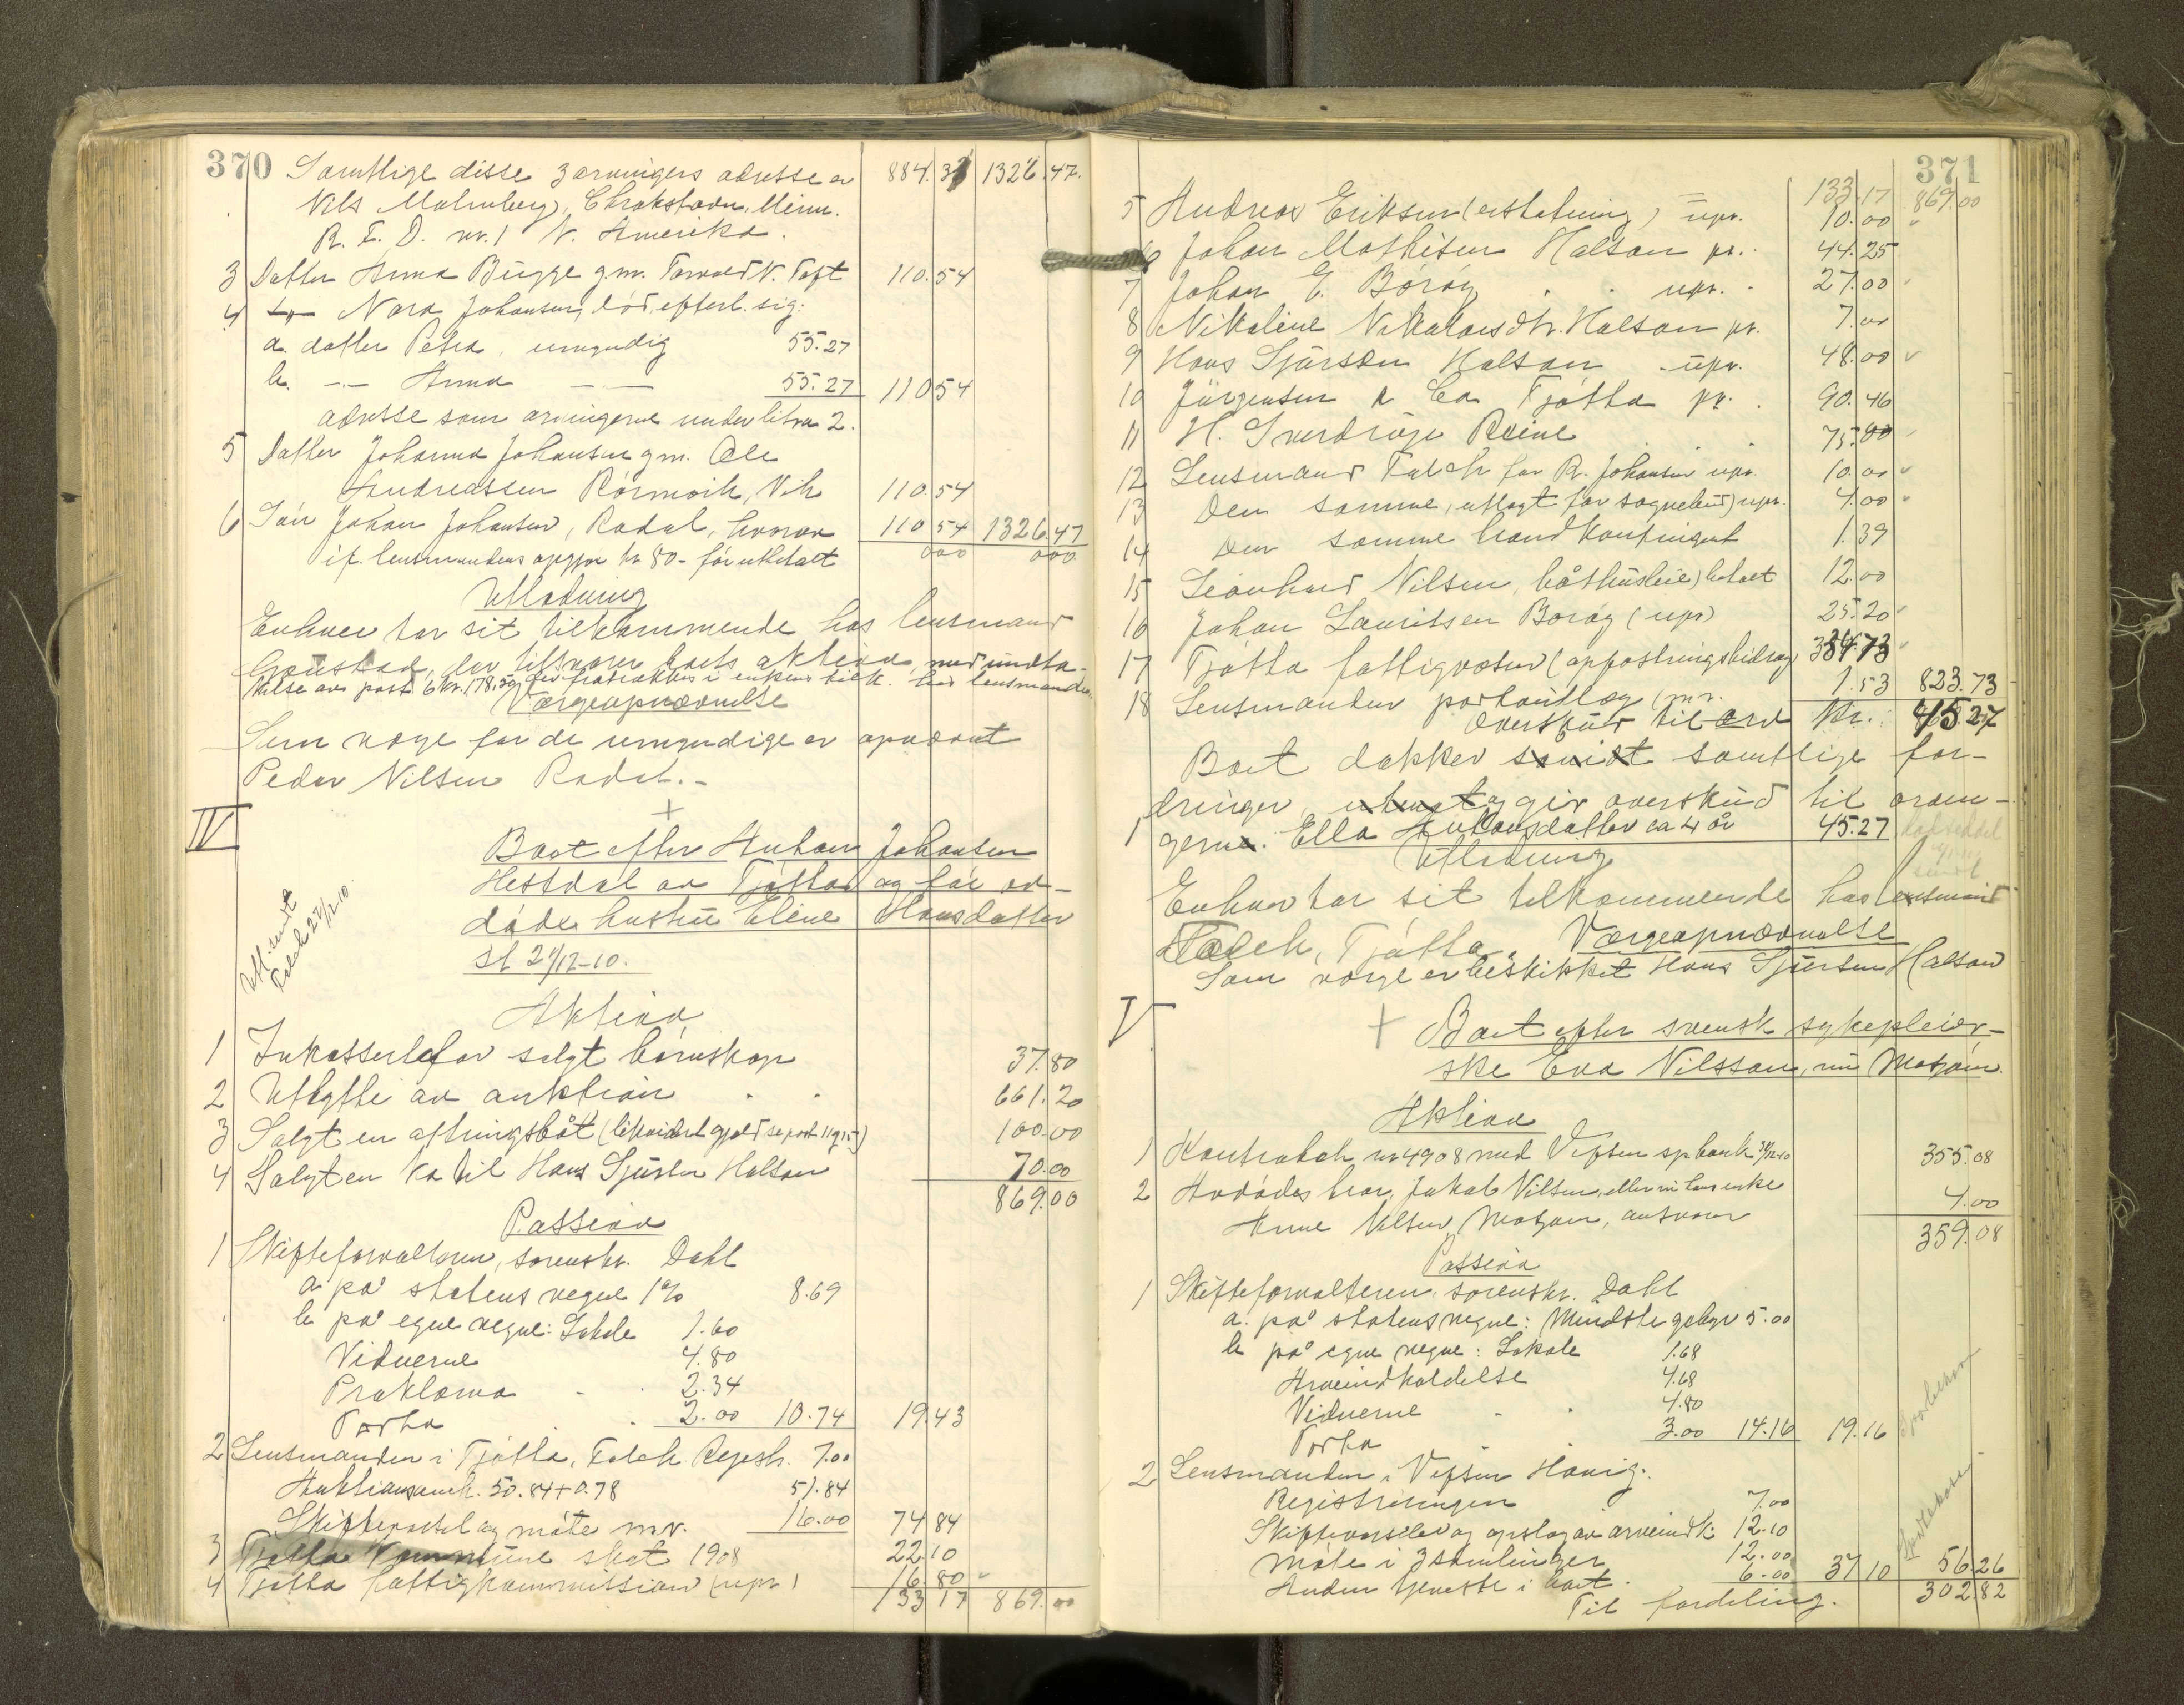 370
Samtlige disse 3 arvingers adresse er 884.3 1326.47.
Nils Malmberg, Minn.
R. F. D. nr. 1 N. Amerika.
3 Datter Anna Bugge g.m. Torvald N. Toft 110.54
4 Nora Johansen, död, efterl. sig:
a. datter Petra, umyndig 55.27
b. -"- Anna -"- 55.27 110 54
adresse som arvingerne under litra 2.
5 Datter Johanna Johansen g.m. Ole
Andreassen Rörmoik, Vik 110.54
6 Sön Johan Johansen, Rodal, hvorav 110 54 1326.47
if. lensmandens opgjør kr 80- før utbetalt 000 000
Utlodning
Enhver har sit tilkommende hos lensmand
der tilsvarer boets aktiva, med undta-
kelse av post 6 kr. 178.50, der fratrækkes i enkens tilk. hos lensmanden
Værgeopnævnelse
Som værge for de umyndige er opnævnt
Peder Nilsen Rodal.-
IV
+
Boet efter Anton Johansen
Hestdal av Tjøtta og før av-
døde hustru Eline Hansdatter
sl 21/12-10.
Utl. sendt
Falch 27/12 10
Aktiva
1 Inkasserte for solgt bornskap 37.80
2 Utbytte av auktion 661.20
3 Solgt en aftringsbåt (likvideret gjæld se post 11 og 15) 100.00
4 Solgt en ko til Hans Sjursen Halsan 70.00
869.00
Passiva
1 Skifteforvalteren, sorenskr. Dahl
a på statens vegne 1% 8.69
b på egne vegne: Lokale 1.60
Vidnerne 4.80
Proklama 2.34
Porto 2.00 10.74 19.43
2 Lensmanden i Tjøtta, Falch Registr. 7.00
Auktionsomk. 50.84+0.78 51.84
og møte m.v. 16.00 74 84
3 Tjøtta kommune skat 1908 22.10
4 Tjøtta fattigkommission (upr.) 16.80
133 17 869.00
371
133.17 869.00
5 Andreas Eriksen (erstatning) upr. 10.00
6 Johan Mathisen Halsan pr. 44.25
7 Johan E. Börög upr. 27.00
8 Nikoline Nikolaisdtr. Halsan pr. 7.00
9 Hans Sjursen Halsan upr. 48.00
10 Jürgensen & Co Tjøtta pr. 90.46
11 H. Sverdrup Reine 75.00
12 Lensmand Falch for R. Johansen upr. 10.00
13 Den samme, utlagt for sognebud) upr. 4.00
14 Den samme brand kontingent 1.39
15 Leonhard Nilsen, båthusleie) betalt 12.00
16 Johan Lauritsen Borög (upr) 25.20
17 Tjøtta fattigvæsen (opfostringsbidrag) 334.73
18 Lensmanden portoutlæg m.v. 1.53 823.73
Overskud til arv Kr. 45.27
Boet dækker samtlige for-
dringer, og gir overskud til arvin-
1 gerne. Ella Antonsdatter ca 4 år 45.27
Utlodning
Enhver har sit tilkommende hos lensmand
Falch, Tjøtta. Værgeopnævnelse
Som værge er beskikket Hans Sjursen Halsan
V
+ Boet efter svensk sykepleier-
ske Eva Nilsson, nu Mosjøen.
Aktiva
1 Kontrabok nr 4908 med Vefsn sp.bank 355.08
2 Avdødes bror, Jakob Nilsen, eller nu hans enke
Anne Nilsen Mosjøen, ansvar 4.00
359.08
Passiva
1 Skifteforvalteren, sorenskr. Dahl
a. på statens vegne: Mindste gebyr 5.00
b på egne vegne: Lokale 1.68
Arveindkaldelse 4.68
Vidnerne 4.80
Porto 3.00 14.16 19.16
2 Lensmanden i Vefsn Havig:
Registreringen 7.00
Skiftevarsler og opslag av arveindk. 12.10
Møte i 3 samlinger 12.00
Anden tjeneste i boet 6.00 37 10 56.26
Til fordeling. 302.82